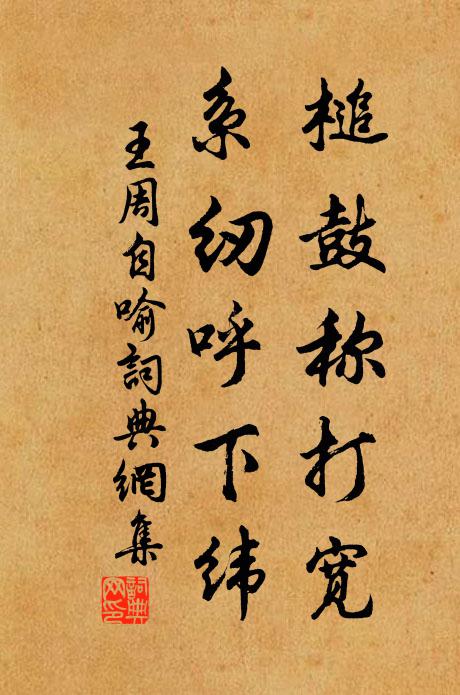 槌鼓称打宽
系纫呼下纬
王周自喻詞典網集
詞典網印